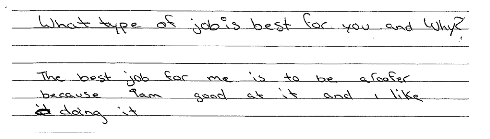 What type of job is best for you and Why?
The best job for me is to be aroofer
because Iam good at it and i like
doing it